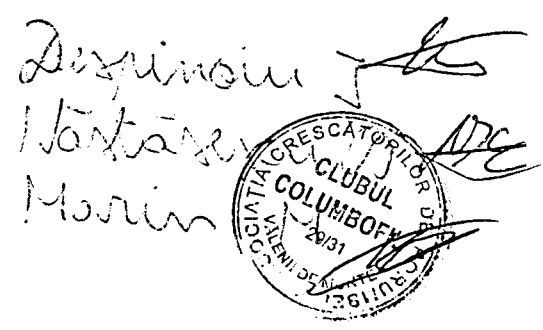 Despinoiu J
Năstăse
Marin M
ASOCIAȚIA CRESCĂTORILOR DE
CLUBUL
COLUMBOFIL
29/31
VĂLENII DE MUNTE